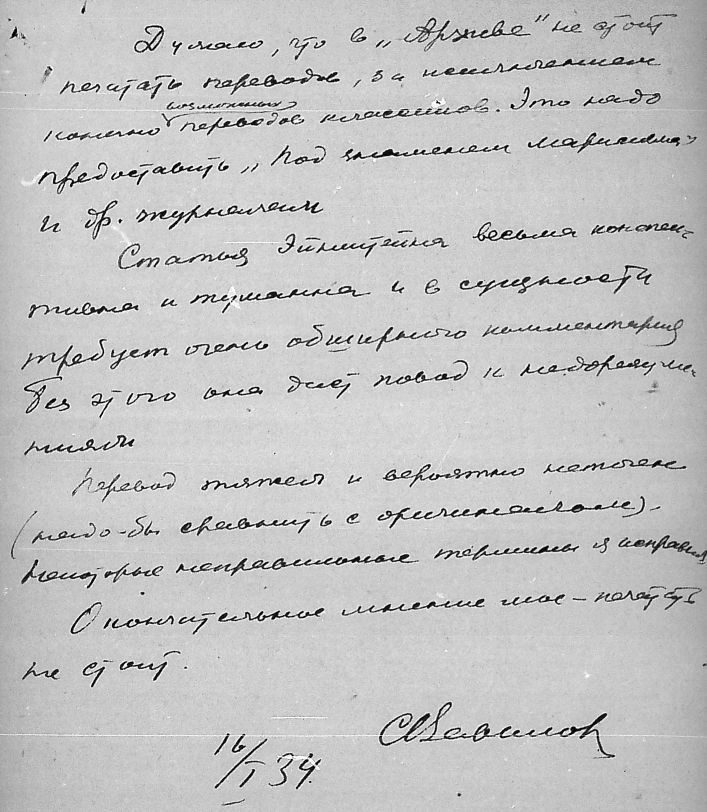 Думаю, что в „Архиве“ не стоит
печатать переводов, за исключением
конечно возможных переводов классиков. Это надо
предоставить „Под знаменем марксизма“
и др. журналам
Статья Эйнштейна весьма конспек-
тивна и туманна и в сущности
требует очень обширного комментария
Без этого она даст повод к недоразуме-
ниям
Перевод тяжел и вероятно неточен
(надо-бы сравнить с оригиналом).
Некоторые неправильные термины я исправил
Окончательное мнение мое – печатать
не стоит.
СВавилов
16/I 34.